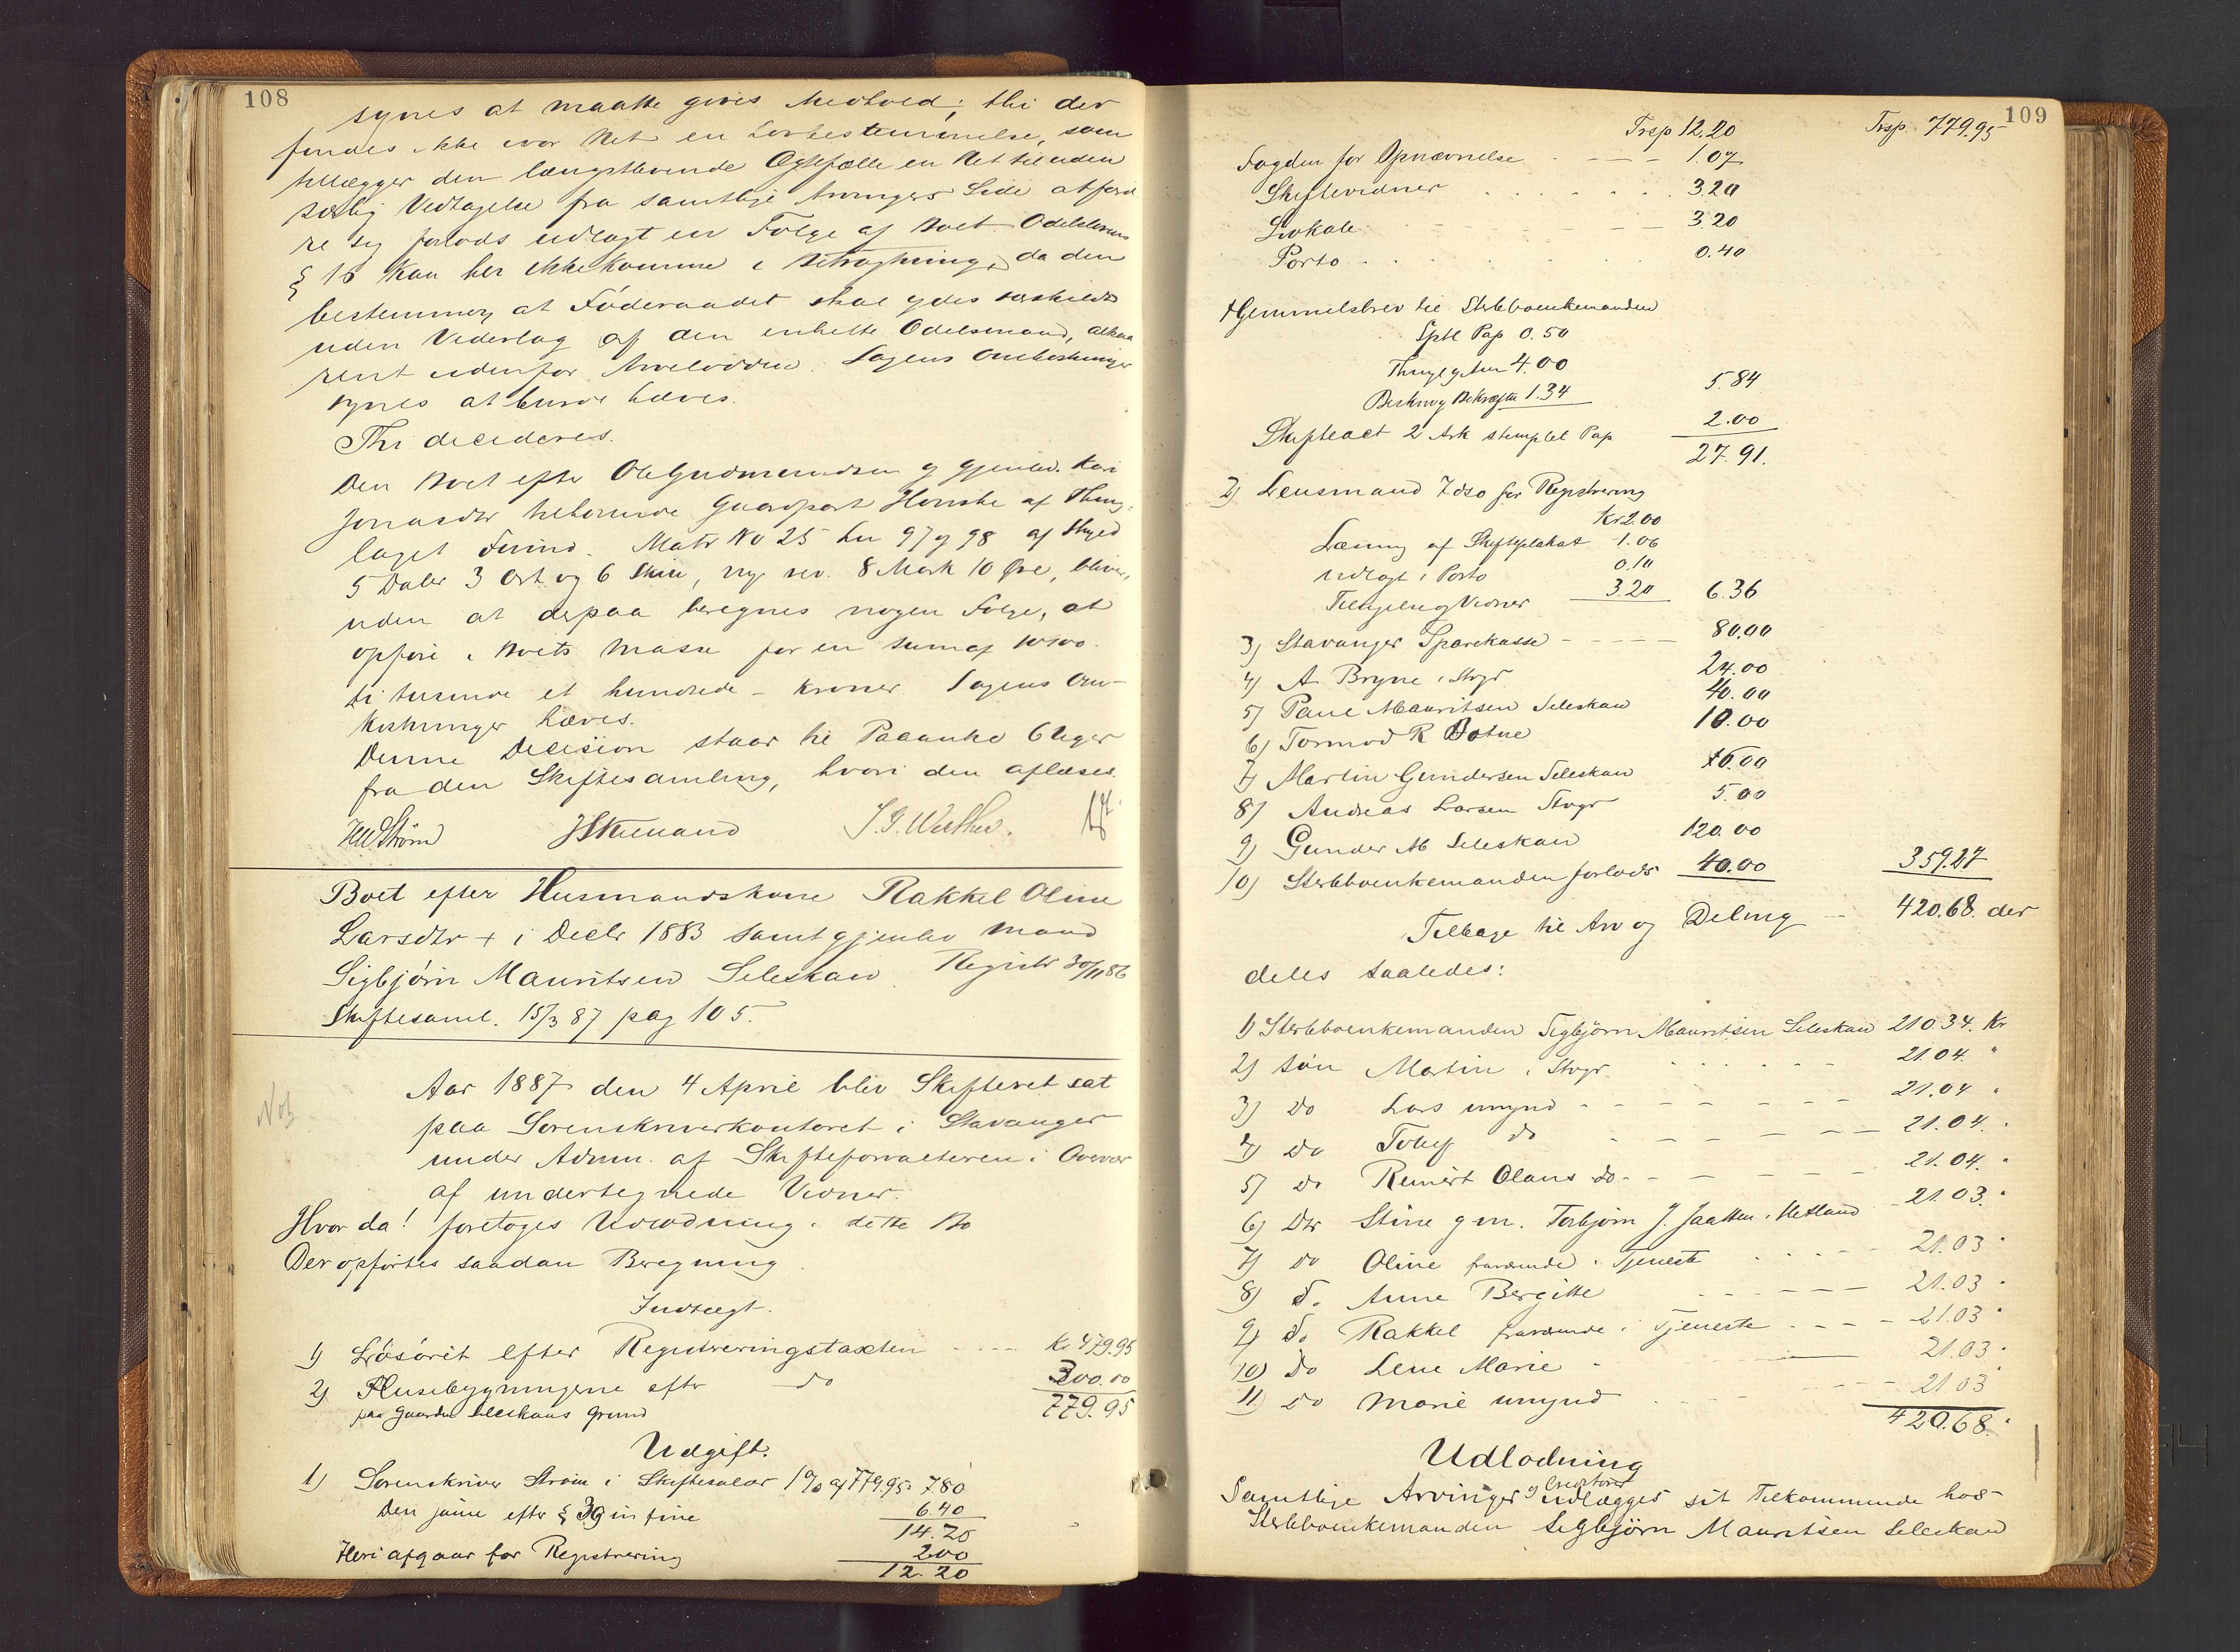 108
synes at maatte gives Medhold; thi der
findes ikke i vor Ret en Lovbestemmelse, som
tillægger den længstlevende Ægtefælle en Ret til uden
særlig Vedtagelse fra samtlige Arvingers Side at for-
re sig forlods udlagt en Følge af Boet Odelslovens
§ 15 kan her ikke komme i Betragtning, da den
bestemmer, at Føderaadet skal ydes særskildt
uden Vederlag af den enkelte Odelsmand, altsaa
rent udenfor Arvelodden. Sagens Omkostninger
synes at burde hæves.
Thi decideres.
Den Boet efter Ole Gudmundsen og gjenlev. Kari
Jonasdtr tilhørende Gaardpart Honske af Thing-
laget Matr No 25 Lnr 97 og 98 af Skyld
5 Daler 3 Ort og 6 Skill, ny rev. 8 Mark 10 Øre, bliver,
uden at derpaa beregnes nogen Følge, at
opføre i Boets Masse for en Sum af 10100
ti tusinde et hundrede - kroner. Sagens Om-
kostninger hæves.
Denne Decision staar til Paaanke 6 Uger
fra den Skiftesamling, hvori den aflæses.
HWStrøm
Boet efter Husmandskone Rakkel Oline
Larsdtr + i Decbr 1883 samt gjenlev Mand
Sigbjørn Mauritsen Seleskav. Registr 30/11 86
Skiftesaml. 15/3 87 pag 105.
Aar 1887 den 4 April blev Skifteret sat
paa Sorenskriverkontoret i Stavanger
under Admin. af Skifteforvalteren i Overvær
af undertegnede Vidner.
Hvor da! foretoges Udlodning i dette Bo
Der opførtes saadan Beregning
Indtægt.
1) Løsøret efter Registreringstaxten - - - Kr 479.95
2) Husebygningerne eftr do 300.00
paa Gaarden Seleskavs Grund 779.95
Udgift.
1) Sorenskriver Strøm i Skiftesalær 1% af 779.95= 7.80
Den samme efter § 39 in fine 6.40
14.20
Heri afgaar for Registrering 2.00
12.20
109
Trsp 12.20 Trsp. 779.95
Fogden for Opnævnelse - - - 1.07
Skiftevidner 3.20
Lokale 3.20
Porto 0.40
Hjemmelsbrev til Sterbboenkemanden
Sptl Pap 0.50
Thinglysn 4.00
Beskriv og Bekræft 1.34 5.84
Skifteact 2 Ark stemplet Pap 2.00
27.91.
2) Lensmand Idsø for Registrering
Kr 2.00
Læsning af Skifteplakat 1.06
Udlagt i Porto 0.10
Tilsigelse og Vidner 3.20 6.36
3) Stavanger Sparekasse - - - - - 80.00
4) A. Bryne i Stvgr 24.00
5) Paul Mauritsen Seleskav 40.00
6) Tormod R 10.00
7) Martin Gundersen Seleskav
8) Andreas Larsen Stvgr 5.00
9) Gunder M Seleskav 120.00
10) Sterbboenkemanden forlods 40.00 359.27
Tilbage til Arv og Deling - 420.68. der
deles saaledes:
1) Sterbboenkemanden Sigbjørn Mauritsen Seleskav 210.34. Kr
2) Søn Martin i Stvgr 21.04. "
3) do Lars umynd - - - 21.04 "
4) do do - - - 21.04. "
5) do Reinert Olaus do - - - 21.04. "
6) Dtr Stine g m. Torbjørn J. Jaatten i Hetland - 21.03. "
7) do Oline fraværende i Tjeneste 21.03 "
8) do Anne Bergitte - - - 21.03 "
9) do Rakkel fraværende i Tjeneste - - - 21.03 "
10) do Lene Marie - 21.03 "
11) do Marie umynd 21.03 "
420.68. "
Udlodning
Samtlige Arvinger og Creditorer udlægges sit Tilkommende hos
Sterbboenkemanden Sigbjørn Mauritsen Seleskav